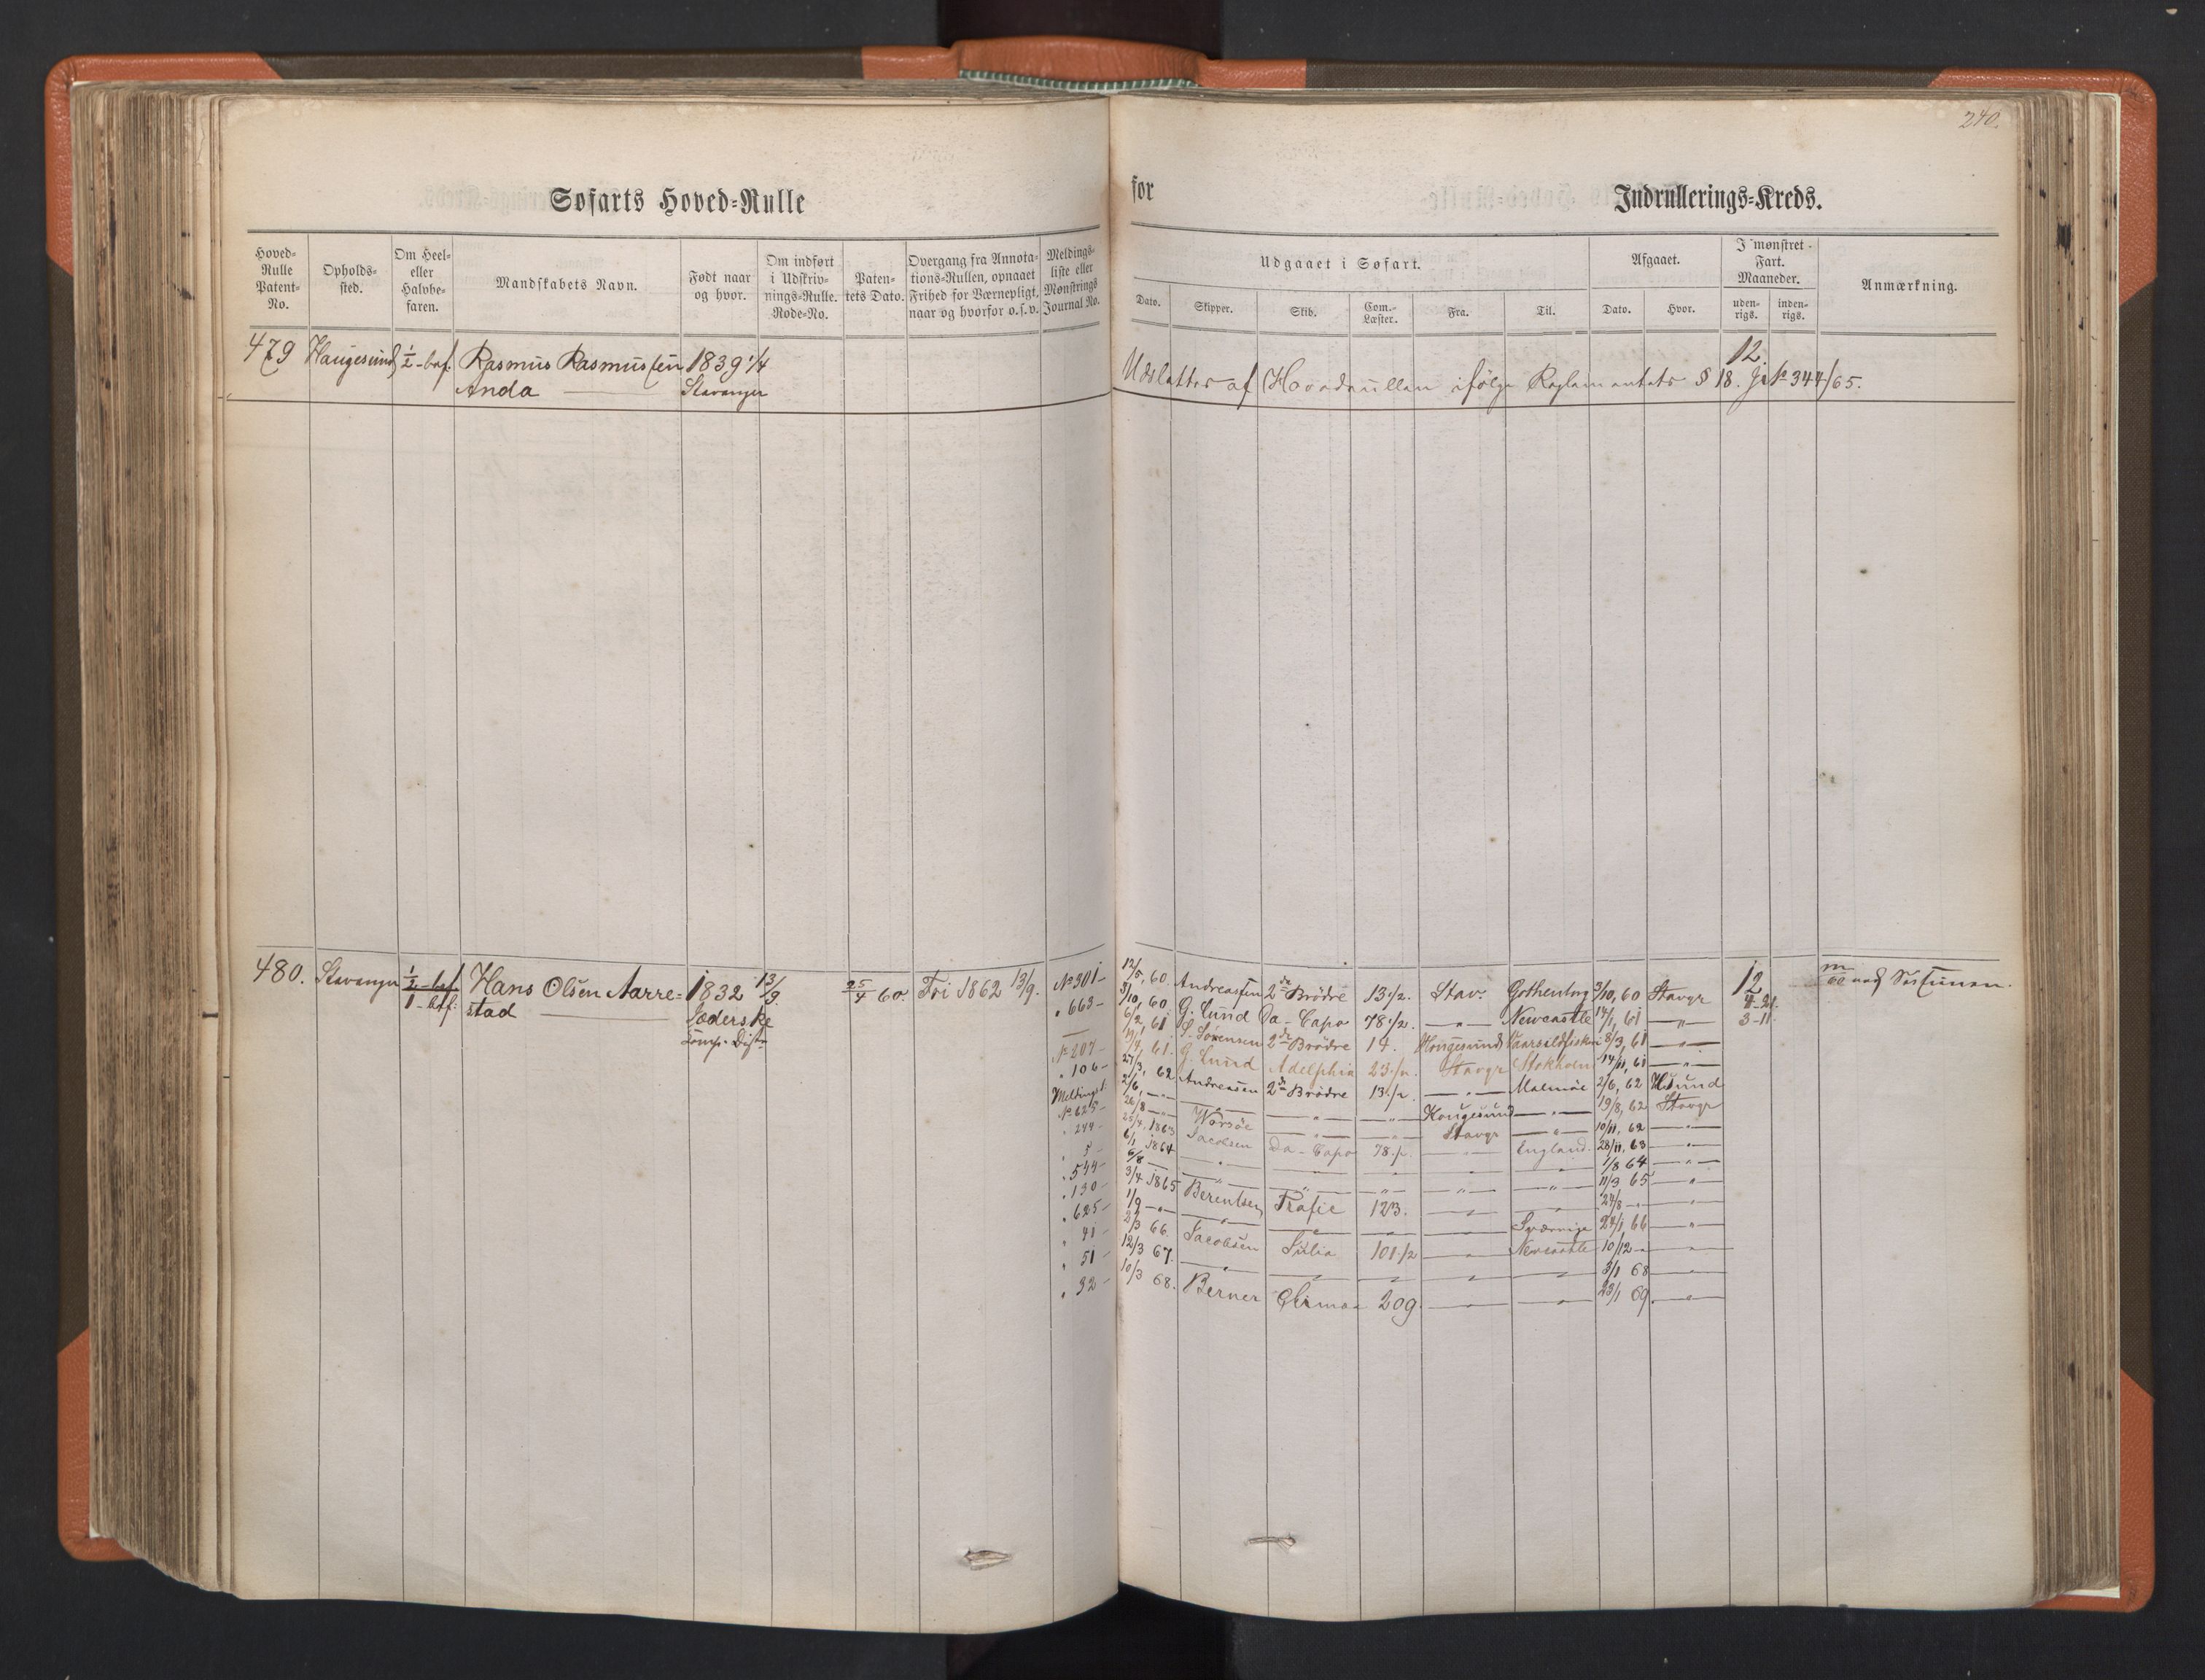 240.
Søfarts Hoved-Rulle
for
Indrullerings-Kreds.
Hoved-Rulle Patent-No.
Opholds-sted.
Om Heel- eller Halvbe-faren.
Mandskabets Navn.
Født naar og hvor.
Om indført i Udskriv-nings-Rulle. Rode-No.
Paten-tets Dato.
Overgang fra Annota-tions-Rullen, opnaaet Frihed for Værnepligt, naar og hvorfor o.s.v.
Meldings-liste eller Mønstrings Journal No.
Udgaaet i Søfart.
Dato.
Skipper.
Skib.
Com.-Læster.
Fra.
Til.
Afgaaet.
Dato.
Hvor.
I mønstret Fart. Maaneder.
uden-rigs.
inden-rigs.
Anmærkning.
479 Haugesund ½-bef. Rasmus Rasmussen 1839 1/4
Anda Stavanger
12
Udslettes af Hovedrullen ifølge Reglementets § 18. J. No 344/65.
480. Stavanger ½-bef. Hans Olsen Aarre- 1832 13/9. 25/4 60. Fri 1862 13/9.
1-bef. stad Jæderske
Comp. Distr
No 301- 12/5, 60 Andreassen 2de Brødre 13½. Stav. Gothenbrg 3/10, 60 Stavgr 12
" 663- 3/10, 60 G. Lund Da-Capo 78½. -"- Newcastle 14/1, 61 -"- 4-21.
6/2, 61 S. Sørensen 2de Brødre 14. Haugesund Vaarsildfisken 8/3, 61 -"- 3-11.
No 207- 19/4, 61. G. Lund Adelphia 23½. Stavgr Stokholm 14/11, 61 -"-
" 106- 27/3, 62 Andreasen 2de Brødre 13½. -"- Malmøe 2/6, 62 H.sund
Meldingsl. 2/6, -"- -"- -"- -"- Haugesund -"- 19/8, 62 Stavgr
No 625- 26/8 -"- Warsøe -"- -"- Stavgr -"- 10/11, 62 -"-
" 244- 25/4, 1863 Jacobsen Da-Capo 78½. -"- England. 28/11, 63 -"-
" 5- 6/1 1864 -"- -"- -"- -"- -"- 1/8 64 -"-
" 544- 6/8 -"- -"- -"- -"- -"- -"- 11/3 65 -"-
" 130- 3/4 1865 Berentsen Trafic 123. -"- -"- 24/8 -"- -"-
" 625- 1/9 -"- -"- -"- -"- -"- Sværrige 24/1 66 -"-
" 41- 2/3 66. Jacobsen Julia 101½ -"- Newcastle 10/12 -"- -"-
" 51- 12/3 67. -"- -"- -"- -"- -"- 3/1 68 -"-
" 32- 10/3 68. Berner 209. -"- -"- 23/1 69. -"-